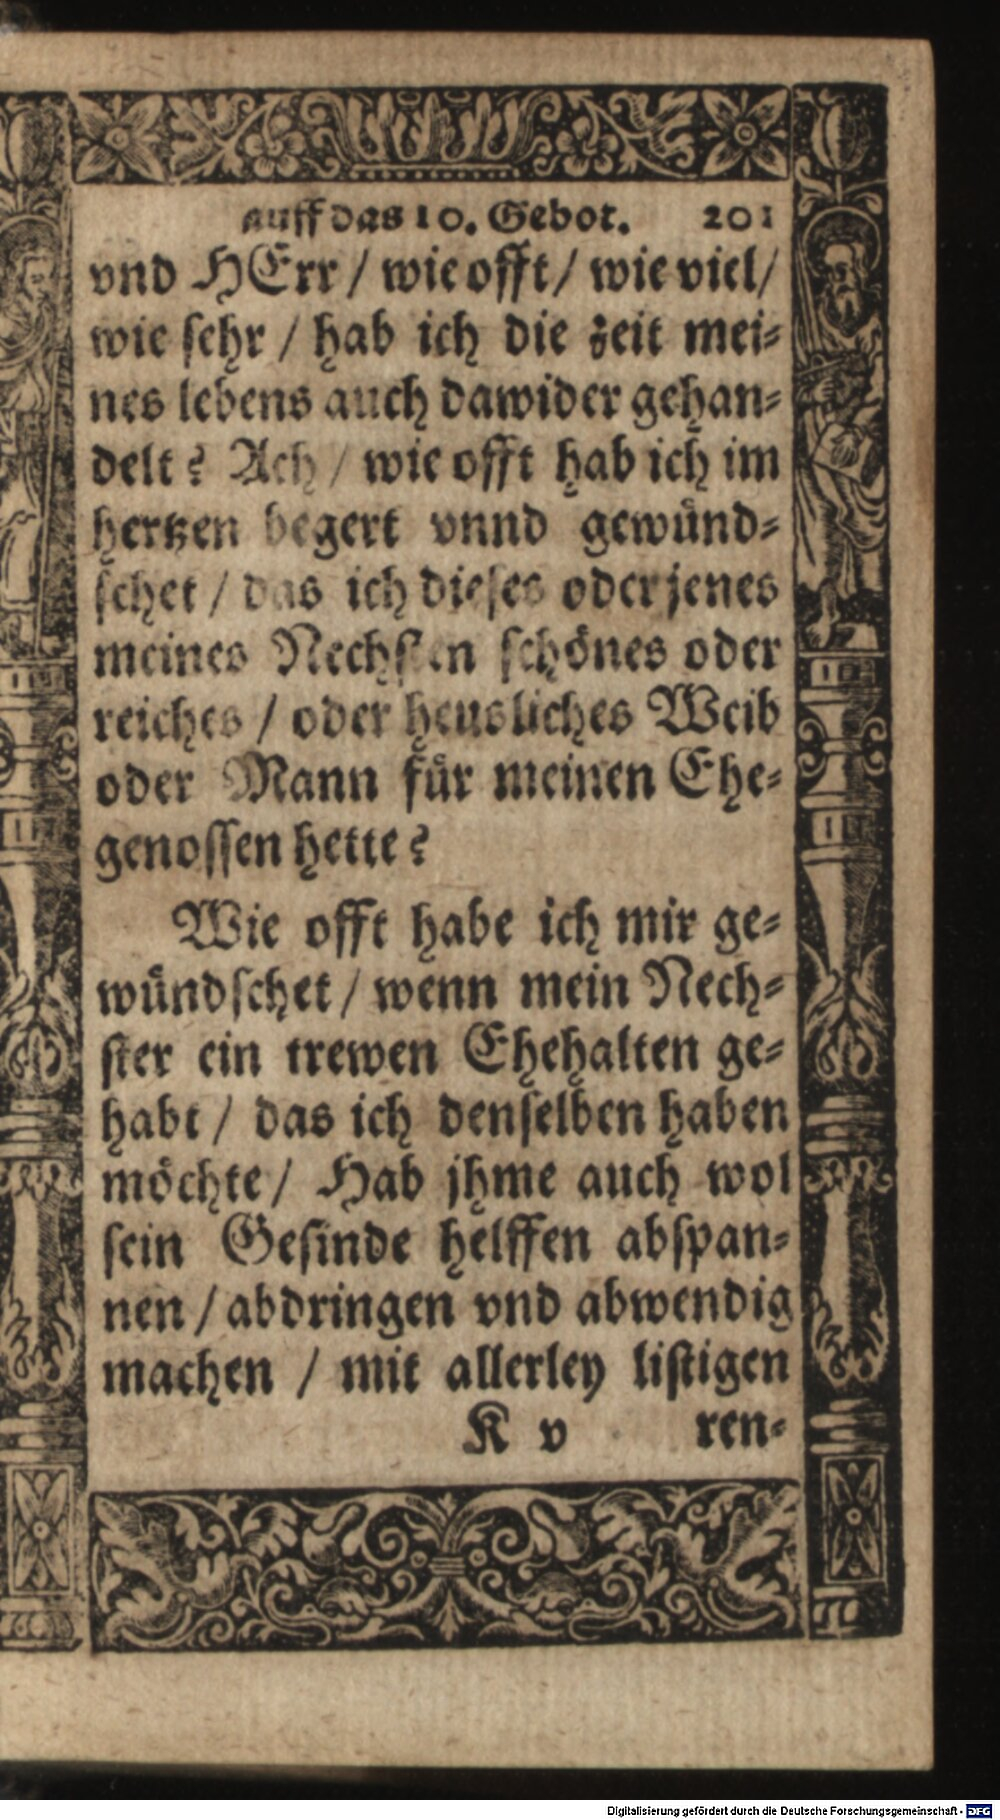 auff das 10. Gebot. 201
vnd HErr / wie offt / wie viel /
wie ſehr / hab ich die zeit mei⸗
nes lebens auch dawider gehan⸗
delt? Ach / wie offt hab ich im
hertzen begert vnnd gewuͤnd⸗
ſchet / das ich dieſes oder jenes
meines Nechſten ſchoͤnes oder
reiches / oder heusliches Weib
oder Mann fuͤr meinen Ehe⸗
genoſſen hette?
Wie offt habe ich mir ge⸗
wuͤndſchet / wenn mein Nech⸗
ſter ein trewen Ehehalten ge⸗
habt / das ich denſelben haben
moͤchte / Hab jhme auch wol
ſein Geſinde helffen abſpan⸗
nen / abdringen vnd abwendig
machen / mit allerley liſtigen
K v ren⸗
Digitalisierung gefördert durch die Deutsche Forschungsgemeinschaft - DFG